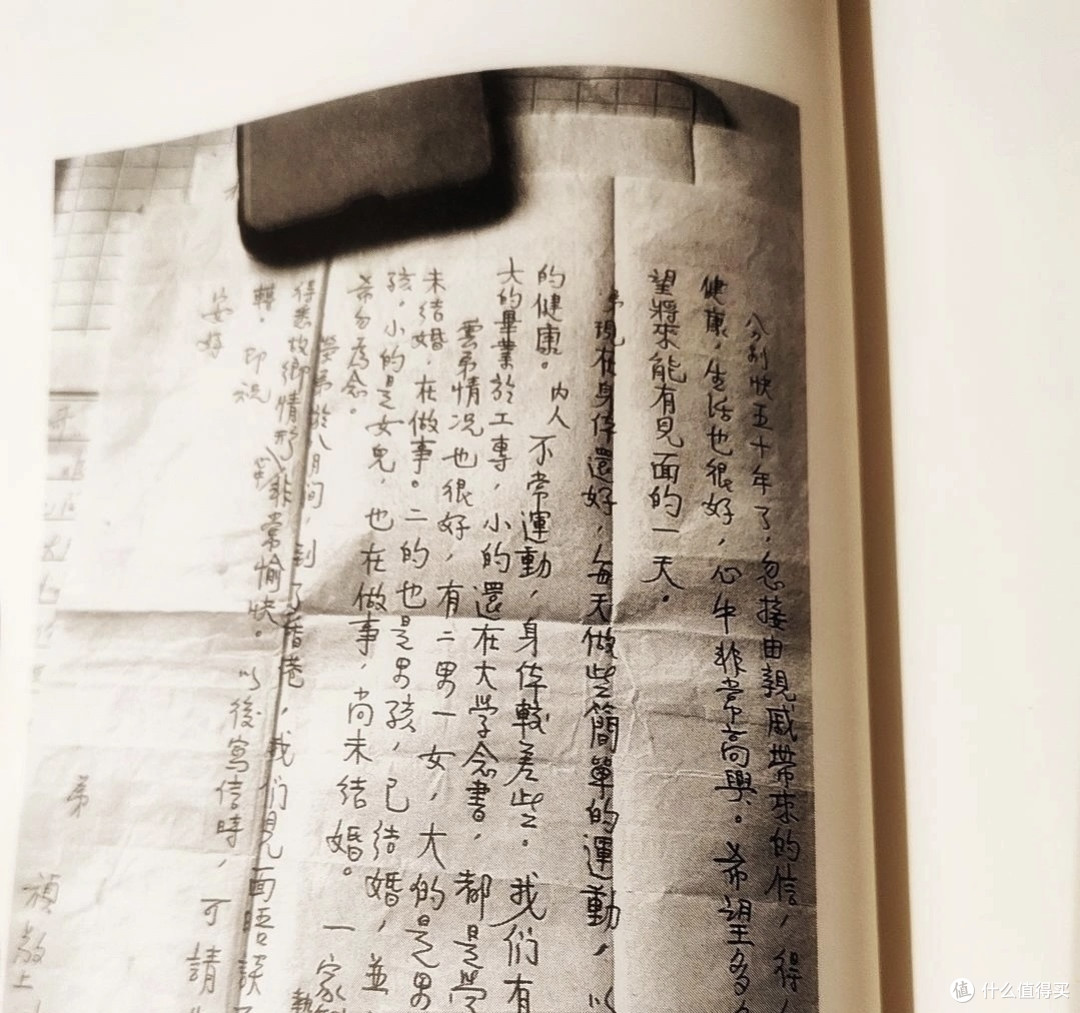 分别快五十年了，忽接由親戚带来的信，得
健康，生活也很好，心中非常高興。希望多
望將來能有見面的一天。
弟現在身体還好，每天做些簡單的運動，以
的健康。内人不常運動，身体較差些。我们有
大的畢業於工專，小的還在大学念書，都是学
雲弟情况也很好，有二男一女，大的是男
未结婚，在做事。二的也是男孩，已结婚，並
孩，小的是女兒，也在做事，尚未结婚。一家
希勿為念。
弟於八月间，到了香港，我们見面晤談
得悉故鄉情形，非常愉快。以後寫信時，可請
轉。即祝
安好
弟
禎敬上
值 什么值得买